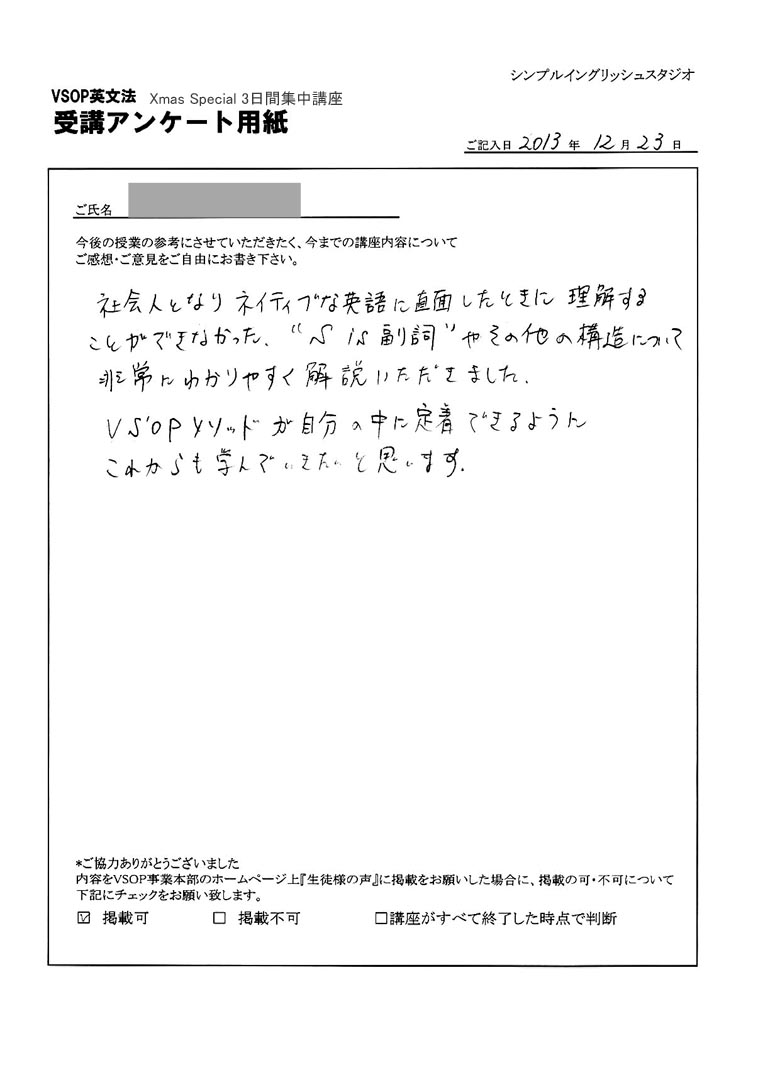 シンプルイングリッシュスタジオ
VSOP英文法 Xmas Special 3日間集中講座
受講アンケート用紙
ご記入日 2013 年 12 月 23 日
ご氏名
今後の授業の参考にさせていただきたく、今までの講座内容について
ご感想・ご意見をご自由にお書き下さい。
社会人となり ネイティブな英語に直面したときに 理解する
ことができなかった、“S is 副詞”やその他の構造について
非常にわかりやすく解説いただきました.
VSOPメソッドが自分の中に定着できるように
これからも学んでいきたいと思います.
*ご協力ありがとうございました
内容をVSOP事業本部のホームページ上『生徒様の声』に掲載をお願いした場合に、掲載の可・不可について
下記にチェックをお願い致します。
☑ 掲載可 □ 掲載不可 □講座がすべて終了した時点で判断